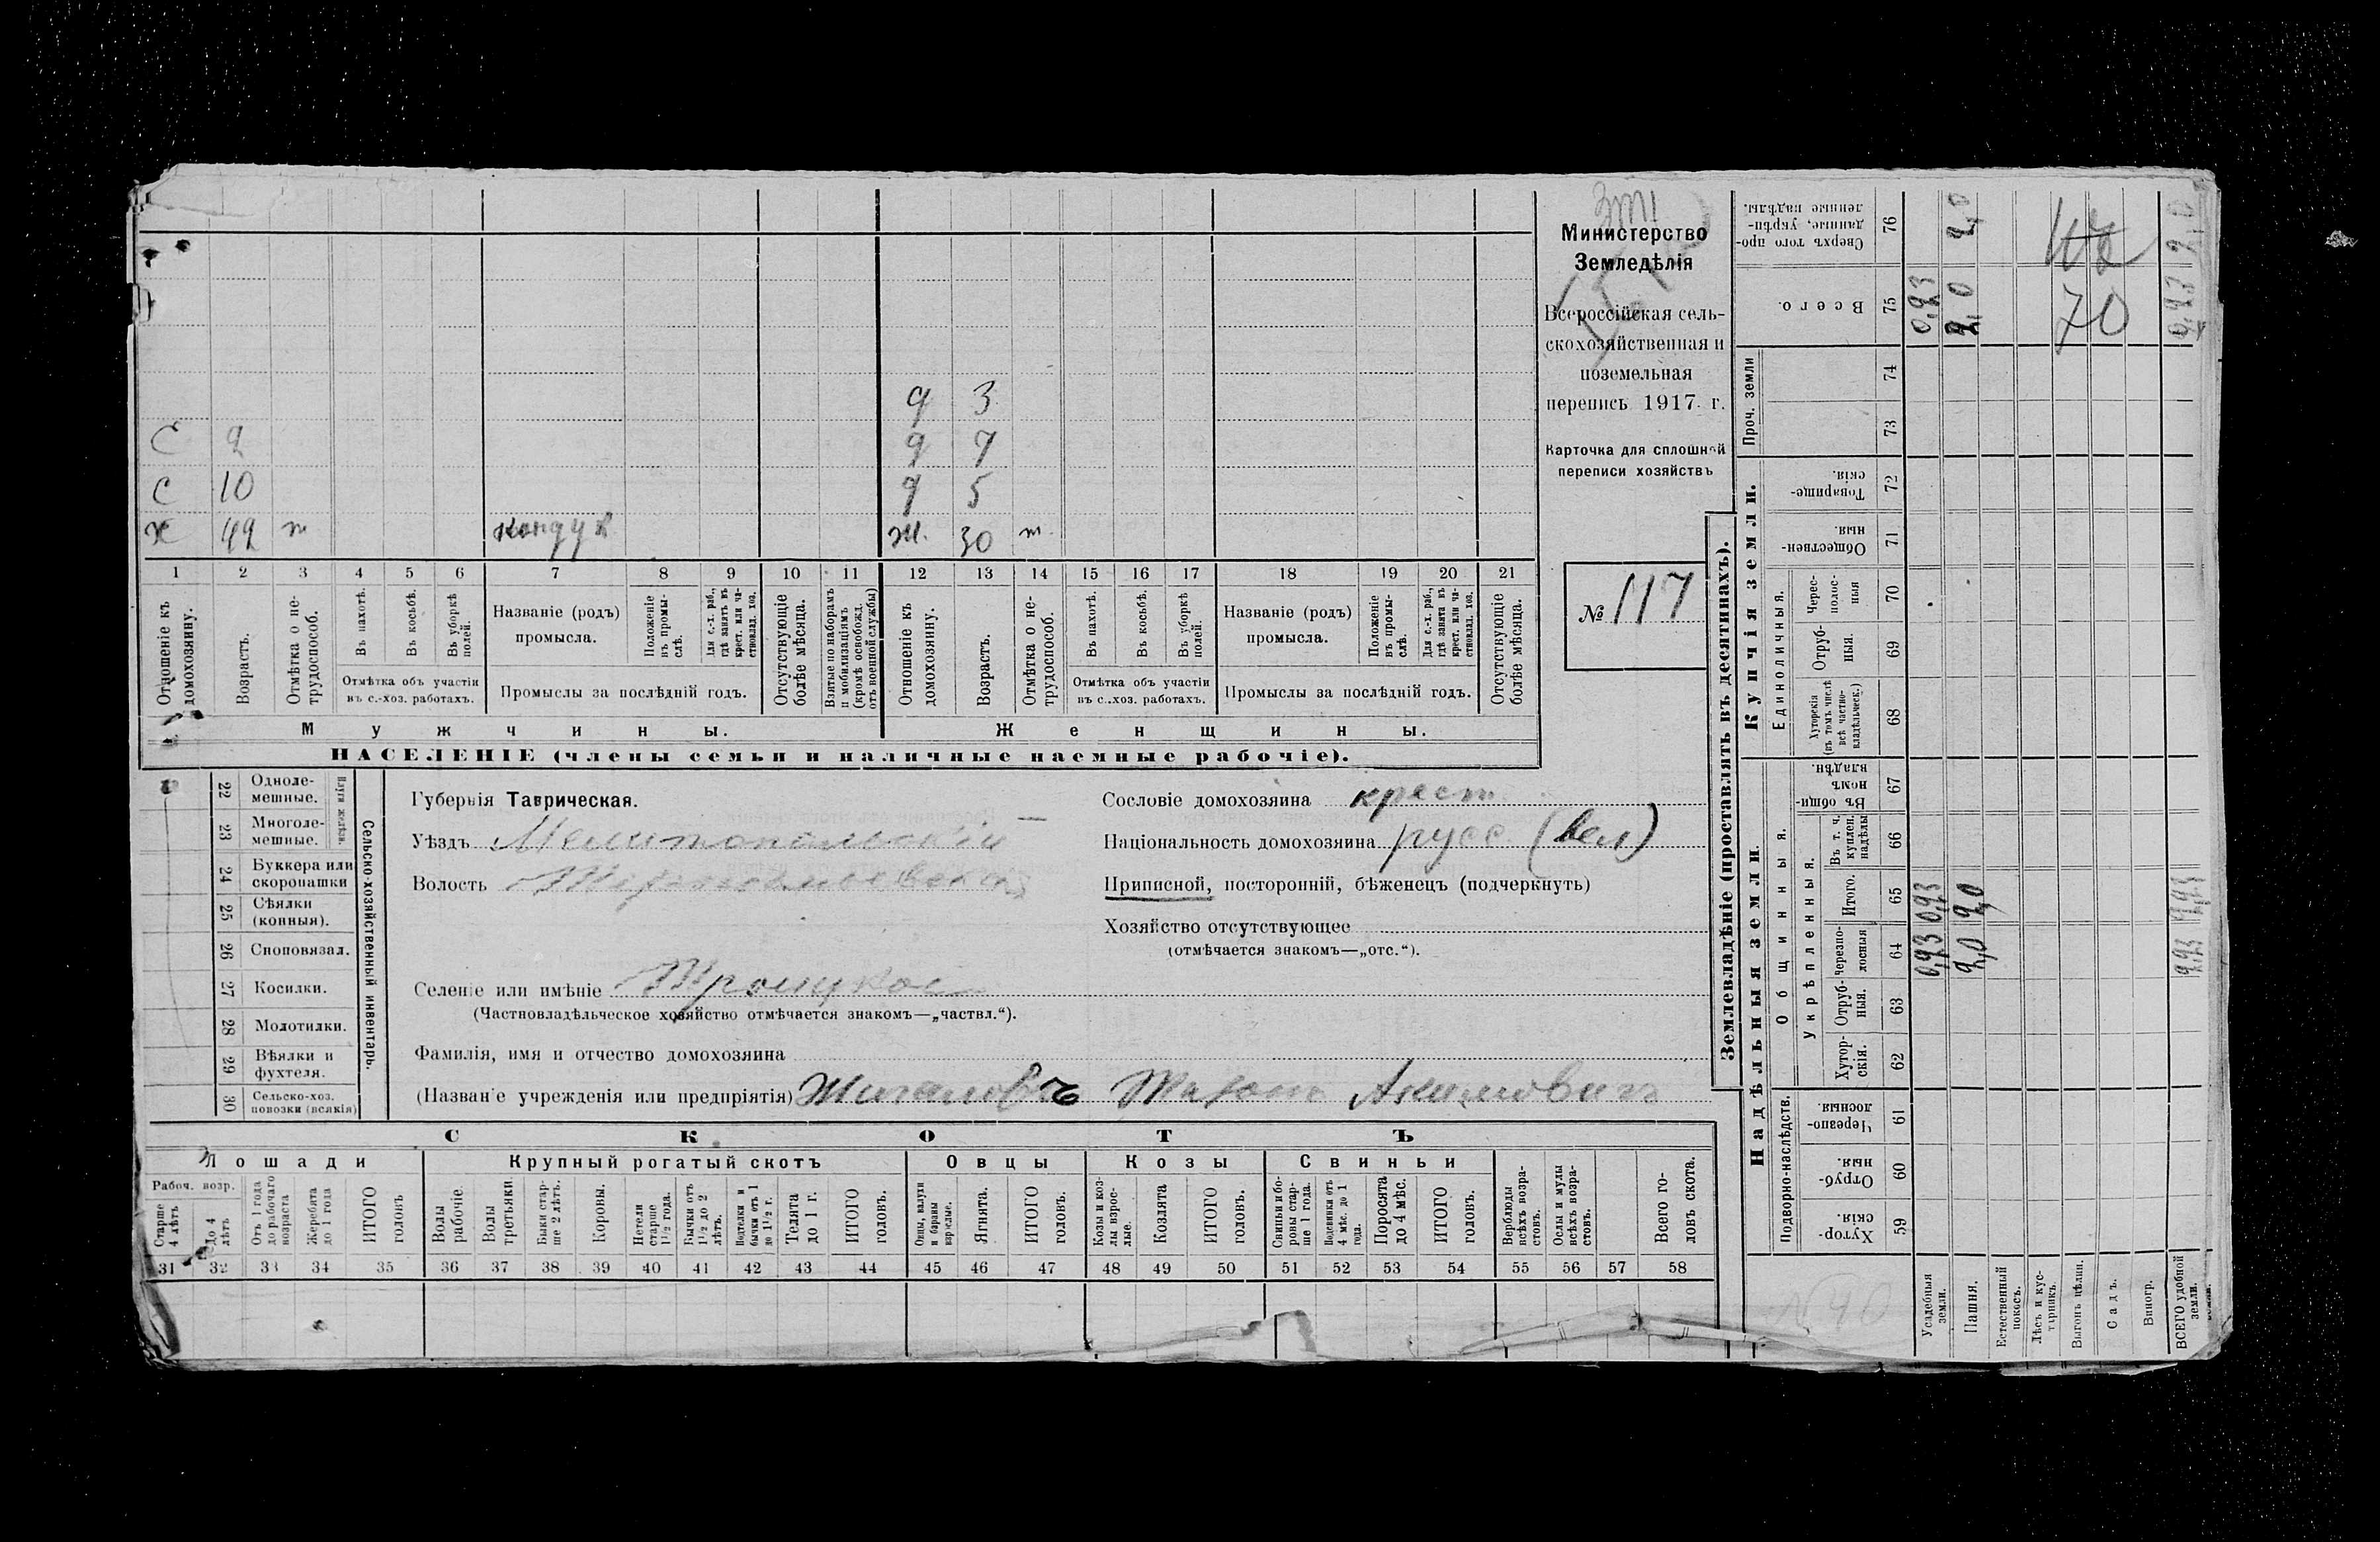 Министерство
Земледѣлія
Всероссійская сель-
скохозяйственная и
поземельная
перепись 1917 г.
Карточка для сплошной
переписи хозяйствъ
№ 117
д 3
С 2 д 7
С 10 д 5
х 42 т кондук ж. 30 т.
1 2 3 4 5 6 7 8 9 10 11 12 13 14 15 16 17 18 19 20 21
Отношеніе къ домохозяину.
Возрастъ.
Отмѣтка о не-трудоспособ.
Въ пахотѣ.
Въ косьбѣ.
Въ уборкѣ полей.
Отмѣтка объ участіи
въ с.-хоз. работахъ.
Названіе (родъ)
промысла.
Положеніе въ промы-слѣ.
Для с.-х. раб., гдѣ занятъ въ крест. или ча-стновлад. хоз.
Промыслы за послѣдній годъ.
Отсутствующіе болѣе мѣсяца.
Взятые по наборамъ и мобилизаціямъ (кромѣ освобожд. отъ военной службы)
Отношеніе къ домохозяину.
Возрастъ.
Отмѣтка о не-трудоспособ.
Въ пахотѣ.
Въ косьбѣ.
Въ уборкѣ полей.
Отмѣтка объ участіи
въ с.-хоз. работахъ.
Названіе (родъ)
промысла.
Положеніе въ промы-слѣ.
Для с.-х. раб., гдѣ занята въ крест. или ча-стновлад. хоз.
Промыслы за послѣдній годъ.
Отсутствующіе болѣе мѣсяца.
Мужчины. Женщины.
НАСЕЛЕНІЕ (члены семьи и наличные наемные рабочіе).
22 Одноле-мешные.
23 Многоле-мешные.
24 Буккера или скоропашки
25 Сѣялки (конныя).
26 Сноповязал.
27 Косилки.
28 Молотилки.
29 Вѣялки и фухтеля.
30 Сельско-хоз. повозки (всякія)
Сельско-хозяйственный инвентарь.
Губернія Таврическая.
Уѣздъ Мелитопольскій
Волость
Селеніе или имѣніе Троицкое
(Частновладѣльческое хозяйство отмѣчается знакомъ—„частвл.“).
Фамилія, имя и отчество домохозяина
(Названіе учрежденія или предпріятія) Жигаловъ Тихонъ Акимовичъ
Сословіе домохозяина крест.
Національность домохозяина русс. (вел)
Приписной, посторонній, бѣженецъ (подчеркнуть)
Хозяйство отсутствующее
(отмѣчается знакомъ—„отс.“).
СКОТЪ
Лошади Крупный рогатый скотъ Овцы Козы Свиньи
Рабоч. возр.
Старше 4 лѣтъ
До 4 лѣтъ
Отъ 1 года до рабочаго возраста
Жеребята до 1 года
ИТОГО головъ
Волы рабочіе.
Волы третьяки.
Быки стар-ше 2 лѣтъ.
Коровы.
Нетели старше 1½ года.
Бычки отъ 1½ до 2 лѣтъ.
Подтелки и бычки отъ 1 до 1½ г.
Телята до 1 г.
ИТОГО головъ.
Овцы, валухи и бараны взрослые.
Ягнята.
ИТОГО головъ.
Козы и коз-лы взрос-лые.
Козлята
ИТОГО головъ.
Свиньи и бо-ровы стар-ше 1 года.
Подсвинки отъ 4 мѣс. до 1 года.
Поросята до 4 мѣс.
ИТОГО головъ.
Верблюды всѣхъ возра-стовъ.
Ослы и мулы всѣхъ возра-стовъ.
Всего го-ловъ скота.
31 32 33 34 35 36 37 38 39 40 41 42 43 44 45 46 47 48 49 50 51 52 53 54 55 56 57 58
Землевладѣніе (проставлять въ десятинахъ).
Надѣльныя земли.
Купчія земли.
Проч. земли
Подворно-наслѣдств.
Общинныя.
Укрѣпленныя.
Единоличныя.
Хутор-скія. 59
Отруб-ныя. 60
Черезпо-лосныя. 61
Хутор-скія. 62
Отруб-ныя. 63
Черезпо-лосныя 64
Итого. 65
Въ т. ч. куплен. надѣлы 66
Въ общин-номъ владѣн. 67
Хуторскія (въ томъ числѣ всѣ частно-владѣльческ.) 68
Отруб-ныя. 69
Черес-полос-ныя 70
Обществен-ныя. 71
Товарище-скія. 72
73
74
Всего. 75
Сверхъ того про-данные, укрѣп-ленные надѣлы. 76
Усадебныя земли. 0,93 0,93 0,93
Пашня. 2,0 2,0 2,0 2,0
Естественный покосъ.
Лѣсъ и кус-тарникъ.
Выгонъ цѣлин.
Садъ.
Виногр.
ВСЕГО удобной земли.
70